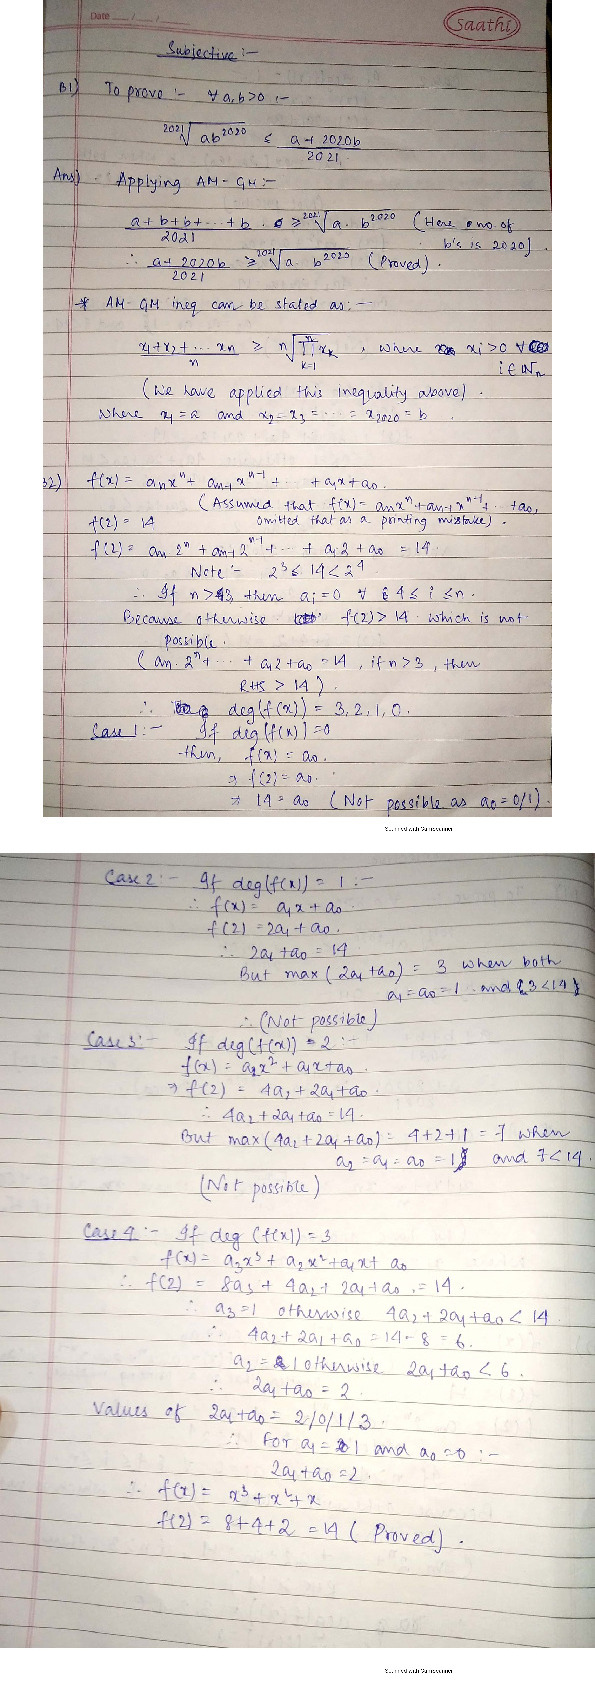 Date ___ / ___ / ___
Saathi
Subjective :-
B1) To prove :- ∀ a,b>0 :-
²⁰²¹√(ab²⁰²⁰) ≤ (a+2020b)/2021
Ans) Applying AM-GM:-
(a+b+b+...+b)/2021 ≥ ²⁰²¹√(a.b²⁰²⁰) (Here no. of
b's is 2020).
∴ (a+2020b)/2021 ≥ ²⁰²¹√(a.b²⁰²⁰) (Proved).
* AM-GM ineq can be stated as:--
(x₁+x₂+...xn)/n ≥ n√(∏ₖ₌₁ⁿ xₖ), where xi>0 ∀
i∈Nn
(We have applied this inequality above).
Where x₁=a and x₂=x₃=....=x₂₀₂₀=b.
32) f(x)= anxⁿ + an-1xⁿ⁻¹ +... +a₁x+a₀.
(Assumed that f(x)=anxⁿ+an-1xⁿ⁻¹+.. +a₀,
f(2)=14 omitted that as a printing mistake).
f(2)= an 2ⁿ + an-1 2ⁿ⁻¹ +... + a₁.2 + a₀ = 14.
Note:- 2³ ≤ 14 < 2⁴
∴ If n>3 then ai=0 ∀ 4≤i≤n.
Because otherwise f(2)>14 which is not
possible.
(an.2ⁿ+...+a₁2+a₀=14, if n>3, then
RHS > 14).
∴ deg(f(x)) = 3,2,1,0.
Case 1:- If deg(f(x))=0
then, f(x)= a₀.
⇒ f(2)=a₀.
⇒ 14=a₀ (Not possible as a₀=0/1).
Scanned with CamScanner
Case 2:- If deg(f(x))=1:-
∴ f(x)= a₁x+a₀.
f(2)=2a₁+a₀.
∴ 2a₁+a₀=14
But max(2a₁+a₀)= 3 when both
a₁=a₀=1 and (3<14)
∴ (Not possible)
Case 3:- If deg(f(x))=2:-
f(x)= a₂x²+a₁x+a₀.
⇒ f(2)= 4a₂+2a₁+a₀.
∴ 4a₂+2a₁+a₀=14.
But max(4a₂+2a₁+a₀)= 4+2+1=7 when
a₂=a₁=a₀=1 and 7<14.
(Not possible)
Case 4:- If deg (f(x))=3
f(x)= a₃x³+a₂x²+a₁x+a₀
∴ f(2)= 8a₃+4a₂+2a₁+a₀.=14.
∴ a₃=1 otherwise 4a₂+2a₁+a₀<14.
∴ 4a₂+2a₁+a₀=14-8=6.
a₂=1 otherwise 2a₁+a₀<6.
∴ 2a₁+a₀=2.
Values of 2a₁+a₀=2/0/1/3.
∴ For a₁=1 and a₀=0:-
2a₁+a₀=2.
∴ f(x)= x³+x²+x
f(2)= 8+4+2=14 (Proved).
Scanned with CamScanner